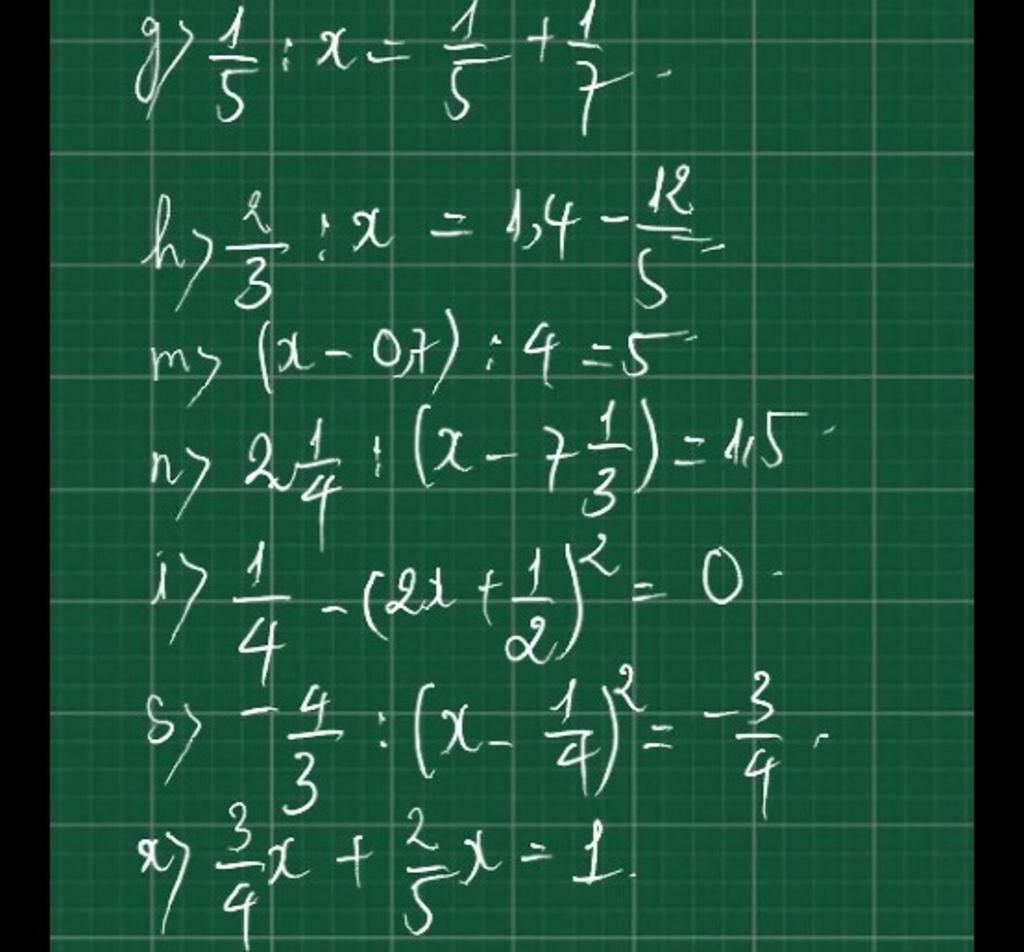 g) 1/5 : x = 1/5 + 1/7.
h) 2/3 : x = 1,4 - 12/5
m) (x - 0,7) : 4 = 5
n) 2 1/4 : (x - 7 1/3) = 1,5.
i) 1/4 - (2x + 1/2)² = 0.
s) -4/3 : (x - 1/4)² = -3/4.
x) 3/4 x + 2/5 x = 1.